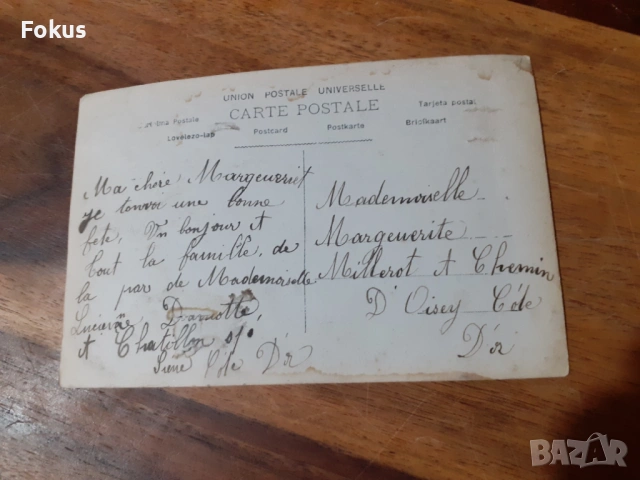 Fokus
UNION POSTALE UNIVERSELLE
CARTE POSTALE
Postale
Tarjeta postal
Levelezo-lap
Postcard
Postkarte
Briefkaart
Ma chere Margeuerit
je tenvoi une bonne
fete, Un bonjour A
tout la famille, de
la par de Mademoiselle
Lucienne, Damotte,
A Chatillon s/o
Siene Côte D'or
Mademoiselle
Marguerite
Millerot A Chemin
D'Oisey Côte
D'or
BAZAR.bg